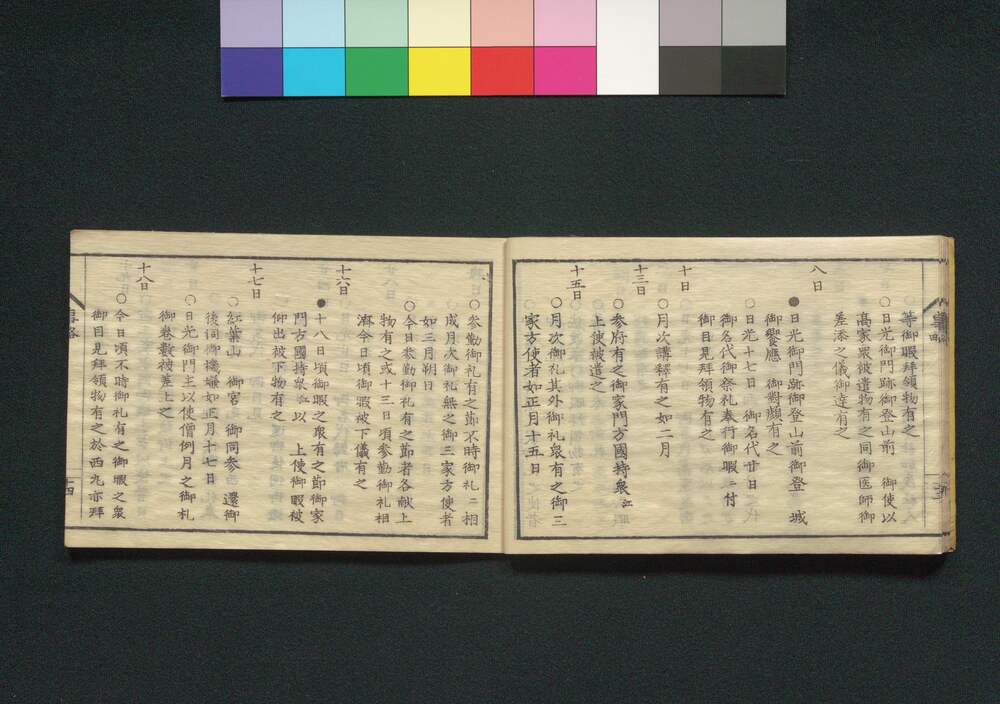 等御暇拝領物有之
○日光御門跡御登山前　御使以
高家衆被遣物有之同御医師御
差添之儀御達有之
八日
●日光御門跡御登山前御登　城
御饗應　御對顔有之
○日光十七日　御名代廿日
御名代御祭礼奉行御暇ニ付
御目見拝領物有之
十日
○月次講釋有之如二月
十三日
○参府有之御家門方國持衆江
上使被遣之
十五日
○月次御礼其外御礼衆有之御三
家方使者如正月十五日
○参勤御礼有之節不時御礼ニ相
成月次御礼無之御三家方使者
如三月朔日
○今日参勤御礼有之節者各献上
物有之或十三日頃参勤御礼相
濟今日頃御暇被下儀有之
十六日
●十八日頃御暇之衆有之節御家
門方國持衆江以　上使御暇被
仰出被下物有之
十七日
○紅葉山　御宮　御同参　還御
後伺御機嫌如正月十七日
○日光御門主以使僧例月之御札
御巻數被差上之
十八日
○今日頃不時御礼有之御暇之衆
御目見拝領物有之於西丸亦拝
十四